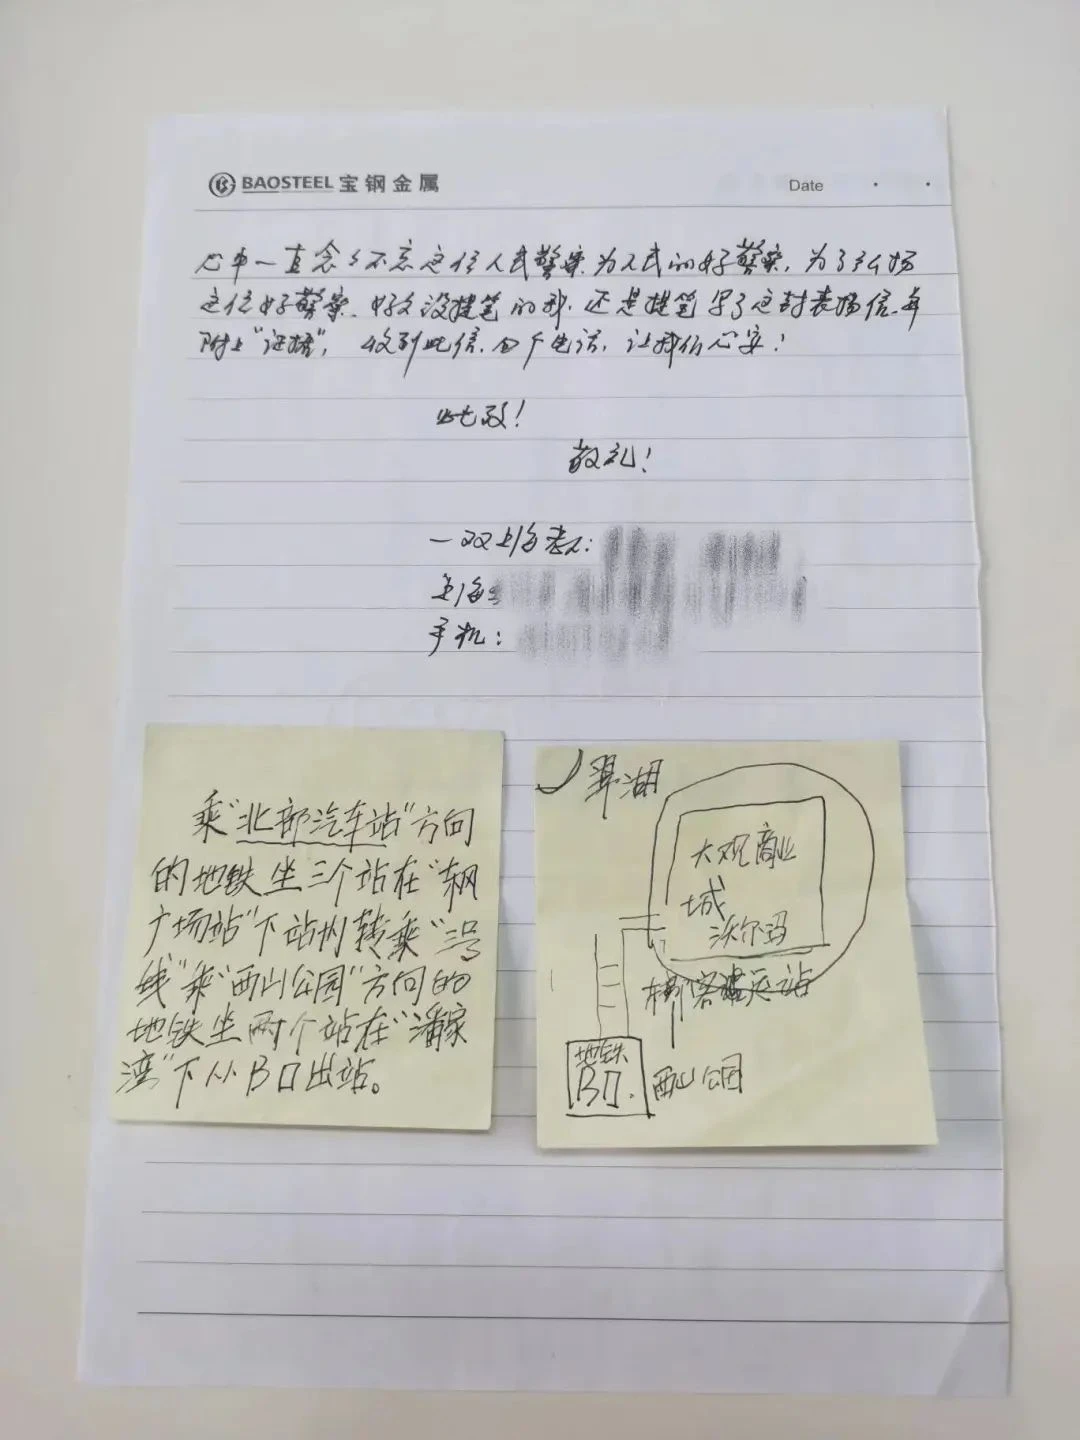 BAOSTEEL 宝钢金属
Date
心中一直念念不忘这位人民警察、为人民的好警察，为了弘扬
这位好警察、好久没提笔的我，还是提笔写了这封表扬信、并
附上“证据”， 收到此信，回个电话，让我们心安！
此致！
敬礼！
一双上海老人：
上海
手机：
乘“北部汽车站”方向
的地铁坐三个站在“东风
广场站”下站内转乘“三号
线”乘“西山公园”方向的
地铁坐两个站在“潘家
湾”下从B口出站。
翠湖
大观商业
城
沃尔玛
客运站
地铁
B口.
西山公园